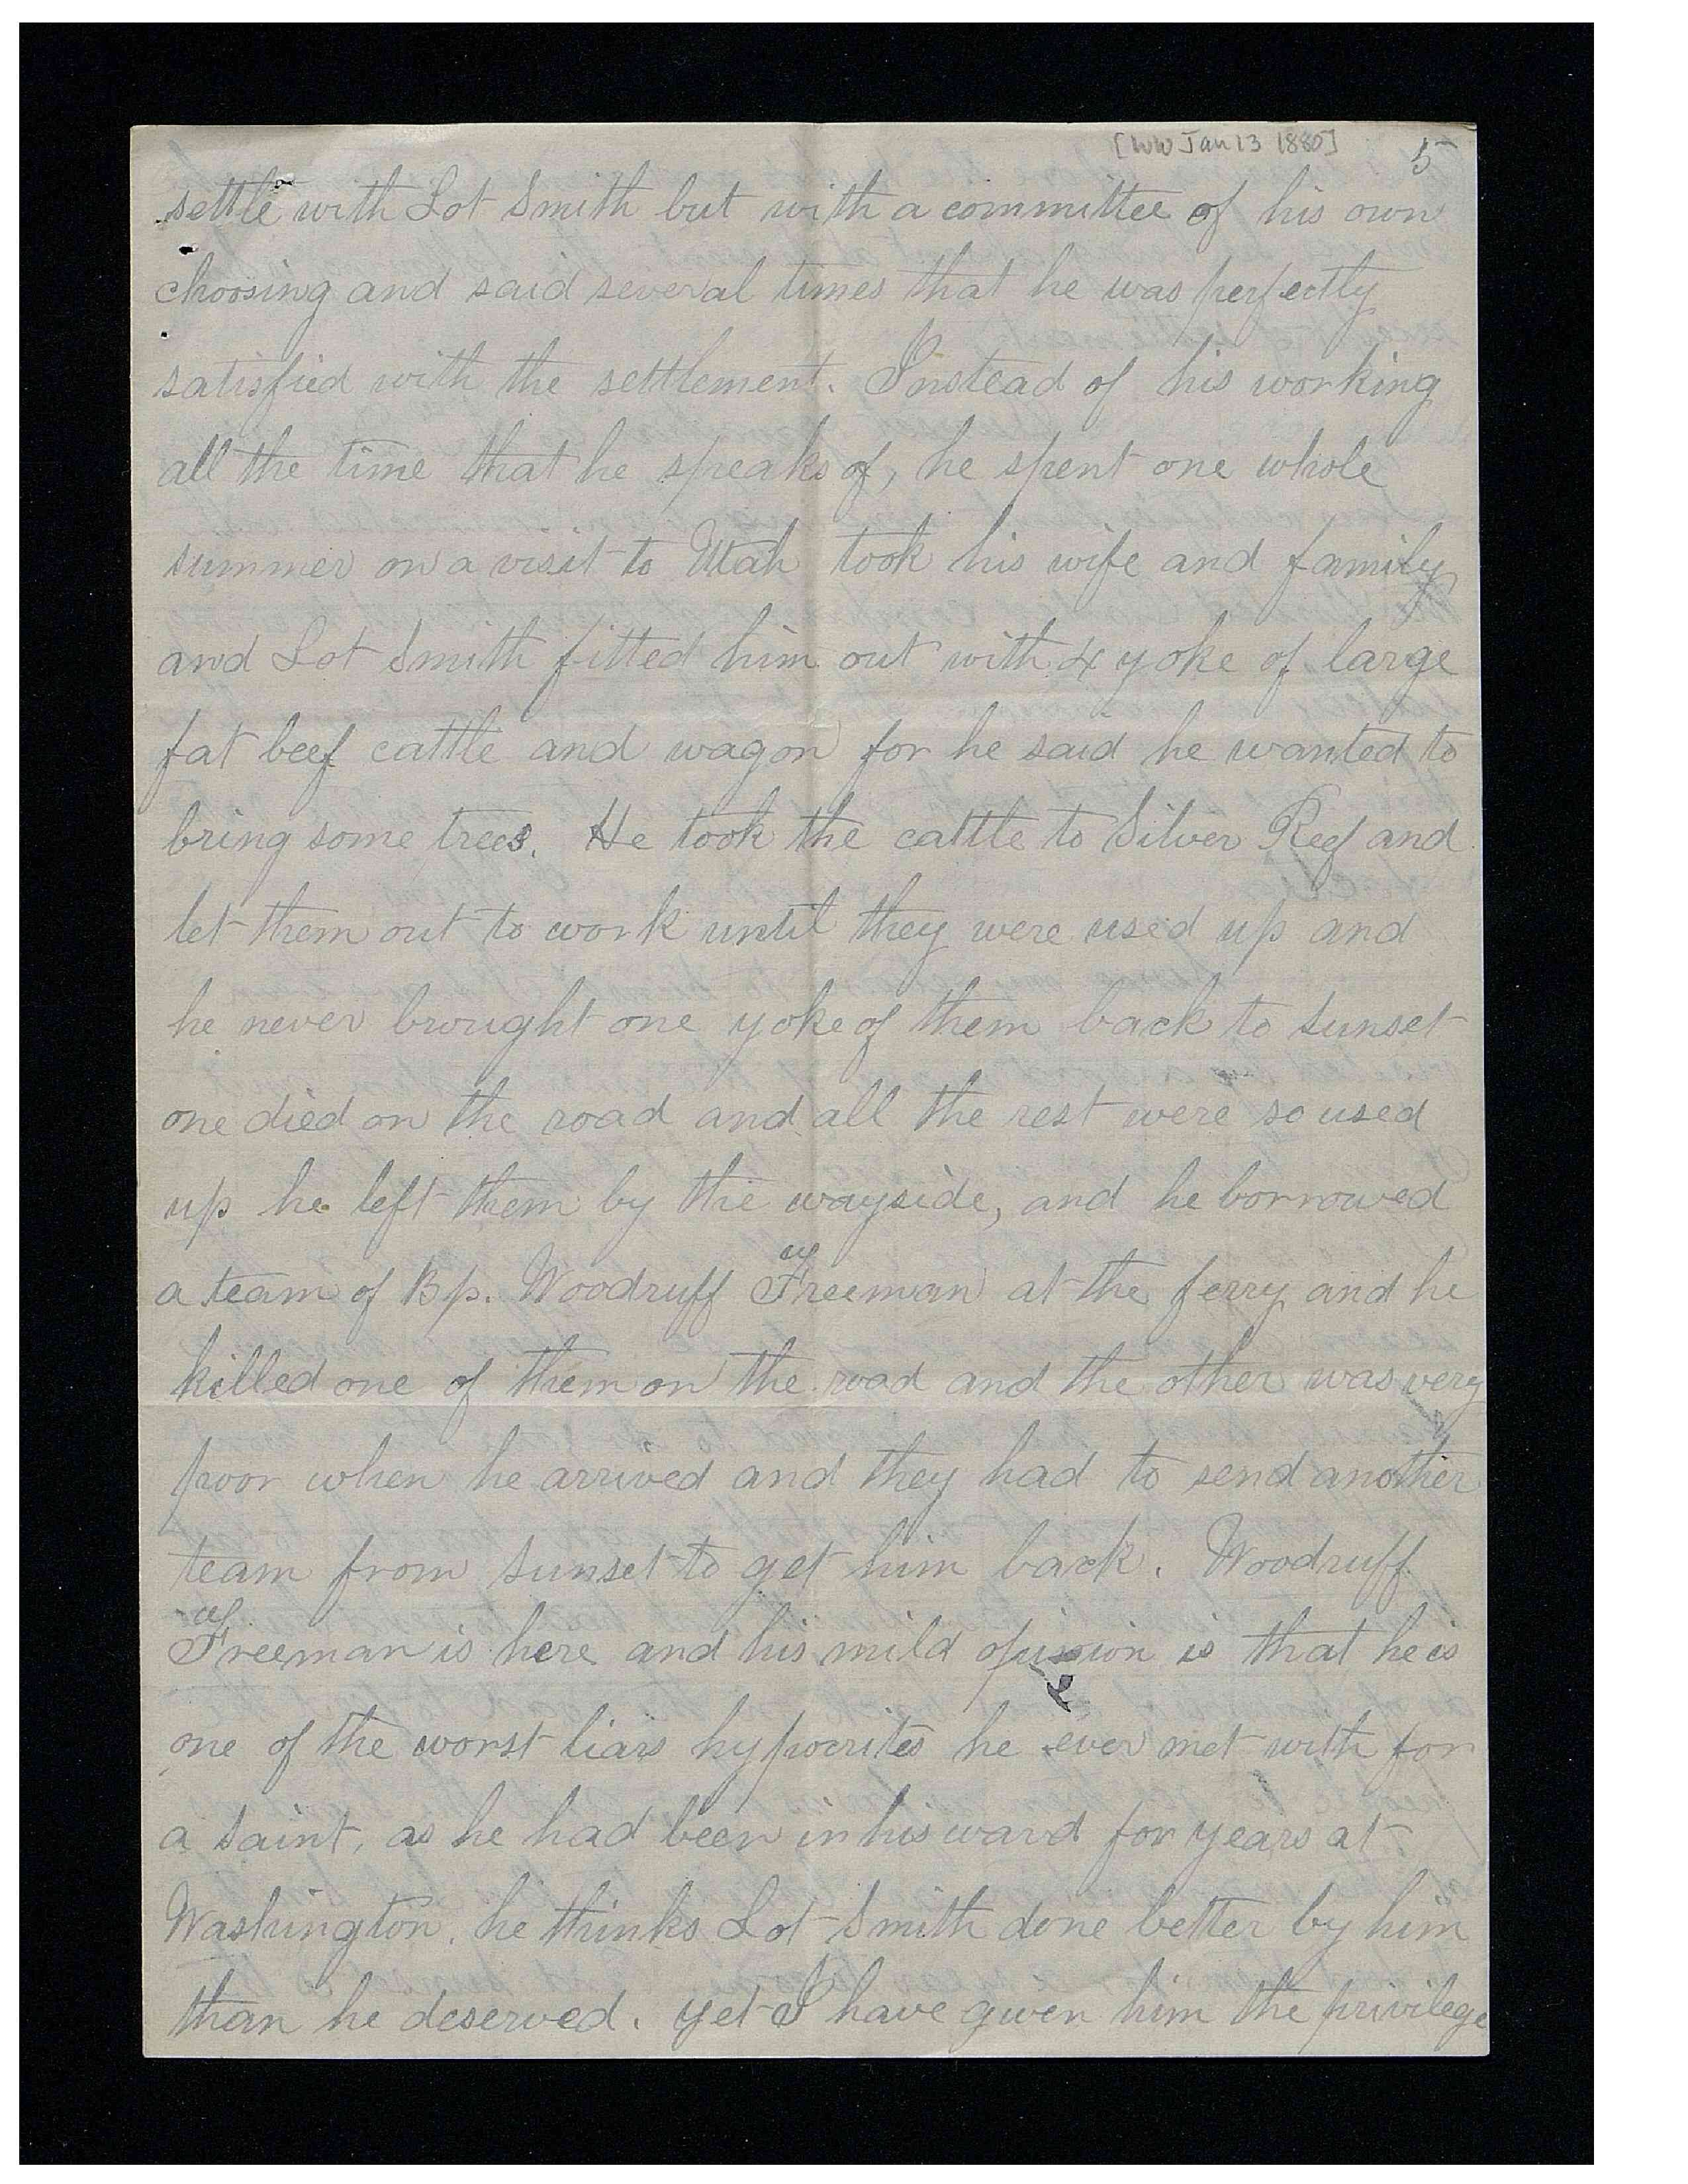 [WW Jan 13 1880] 5
settle with Lot Smith but with a committee of his own
choosing and said several times that he was perfectly
satisfied with the settlement. Instead of his working
all the time that he speaks of, he spent one whole
summer on a visit to Utah took his wife and family
and Lot Smith fitted him out with 4 yoke of large
fat beef cattle and wagon for he said he wanted to
bring some trees. He took the cattle to Silver Reef and
let them out to work until they were used up and
he never brought one yoke of them back to Sunset
one died on the road and all the rest were so used
up he left them by the wayside, and he borrowed
a team of Bp. Woodruff Freeman at the ferry and he
killed one of them on the road and the other was very
poor when he arrived and they had to send another
team from Sunset to get him back. Woodruff
Freeman is here and his mild opinion is that he is
one of the worst liars hypocrites he ever met with for
a saint, as he had been in his ward for years at
Washington. he thinks Lot Smith done better by him
than he deserved. yet I have given him the privilege